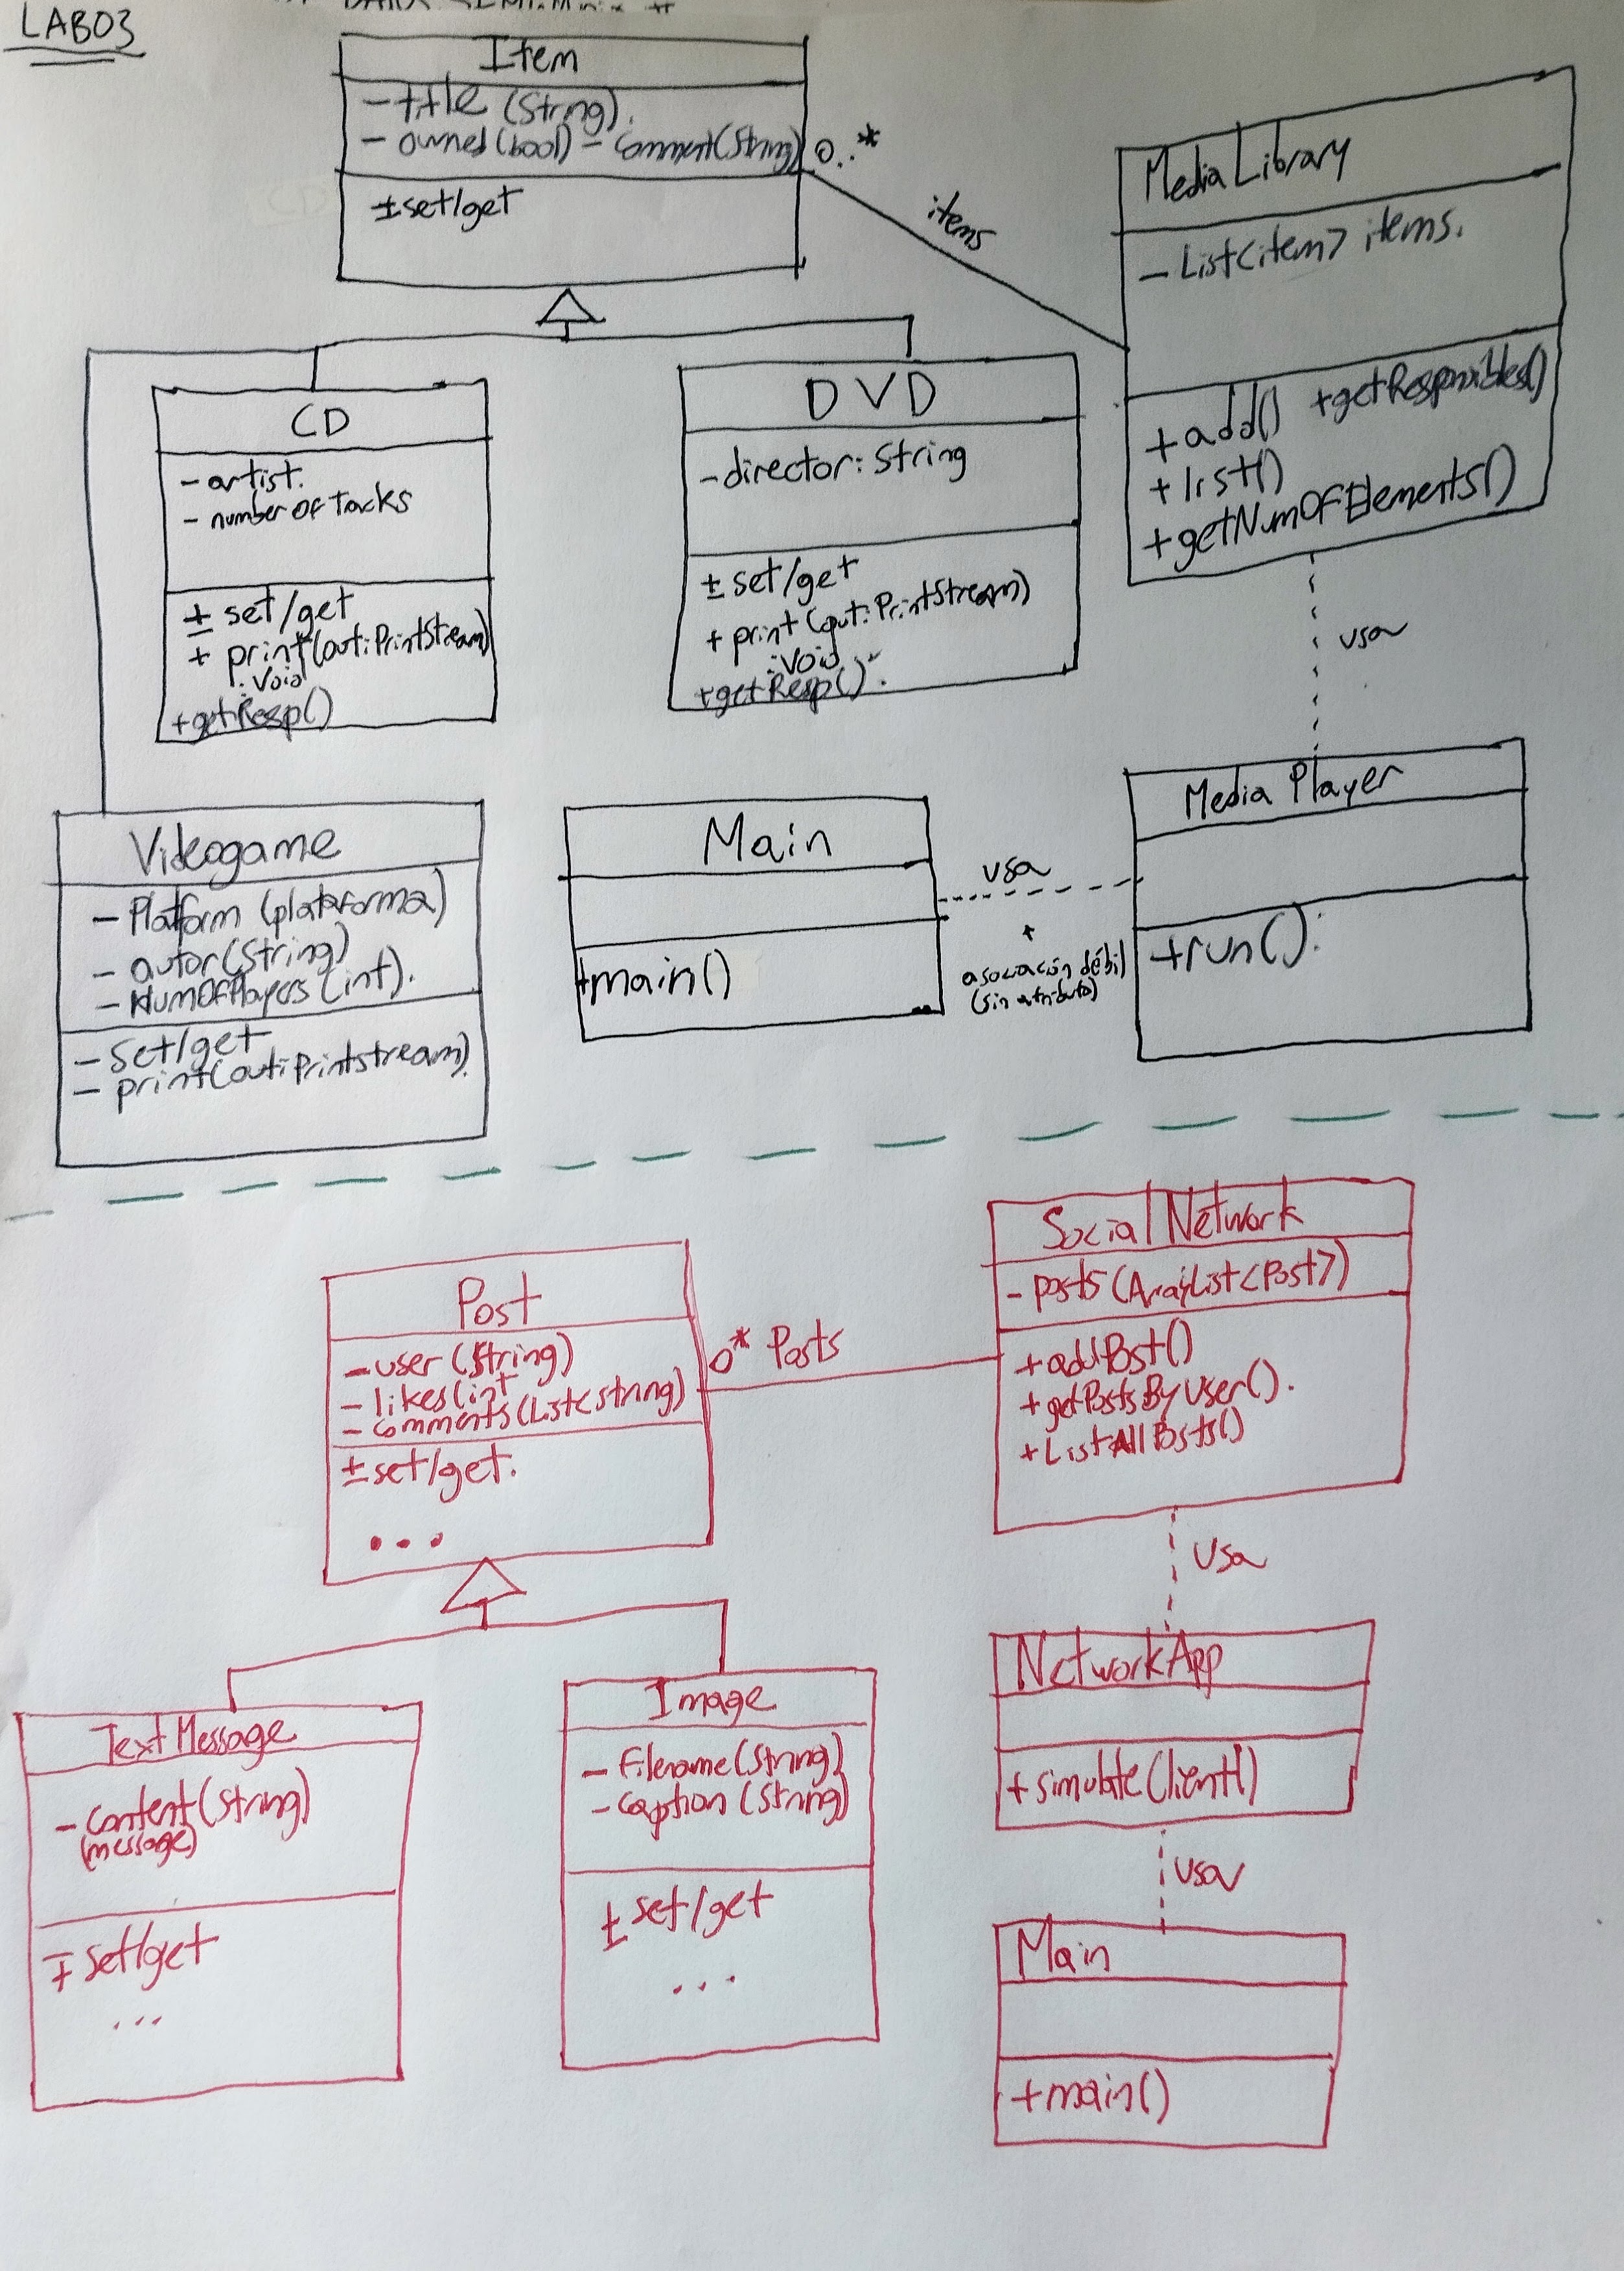 LAB03
Item
- title (String).
- owned(bool) - comment(String)
± set/get
0..*
items
Media Library
- List<item> items.
+ add() +getResponsibles()
+ list()
+ getNumOfElements()
usa
CD
- artist.
- number of Tacks
± set/get
+ print(out:PrintStream)
: Void
+getResp()
DVD
- director: String
± set/get
+ print(out:PrintStream)
: Void
+getResp().
Videogame
- Platform (plataforma)
- autor(String)
- NumOfPlayers (int).
- Set/get
- print(out:Printstream)
Main
+main()
usa
asociación débil
(sin atributo)
Media Player
+run().
Post
- user (String)
- likes(int
- comments(List<string)
± set/get.
...
0* Posts
Social Network
- posts (ArrayList<Post>)
+ addPost()
+ getPostsByUser().
+ ListAllPosts()
usa
Text Message
- content (String)
(message)
∓ set/get
...
Image
- Filename (String)
- caption (String)
± set/get
...
NetworkApp
+ simulate Client()
usa
Main
+main()